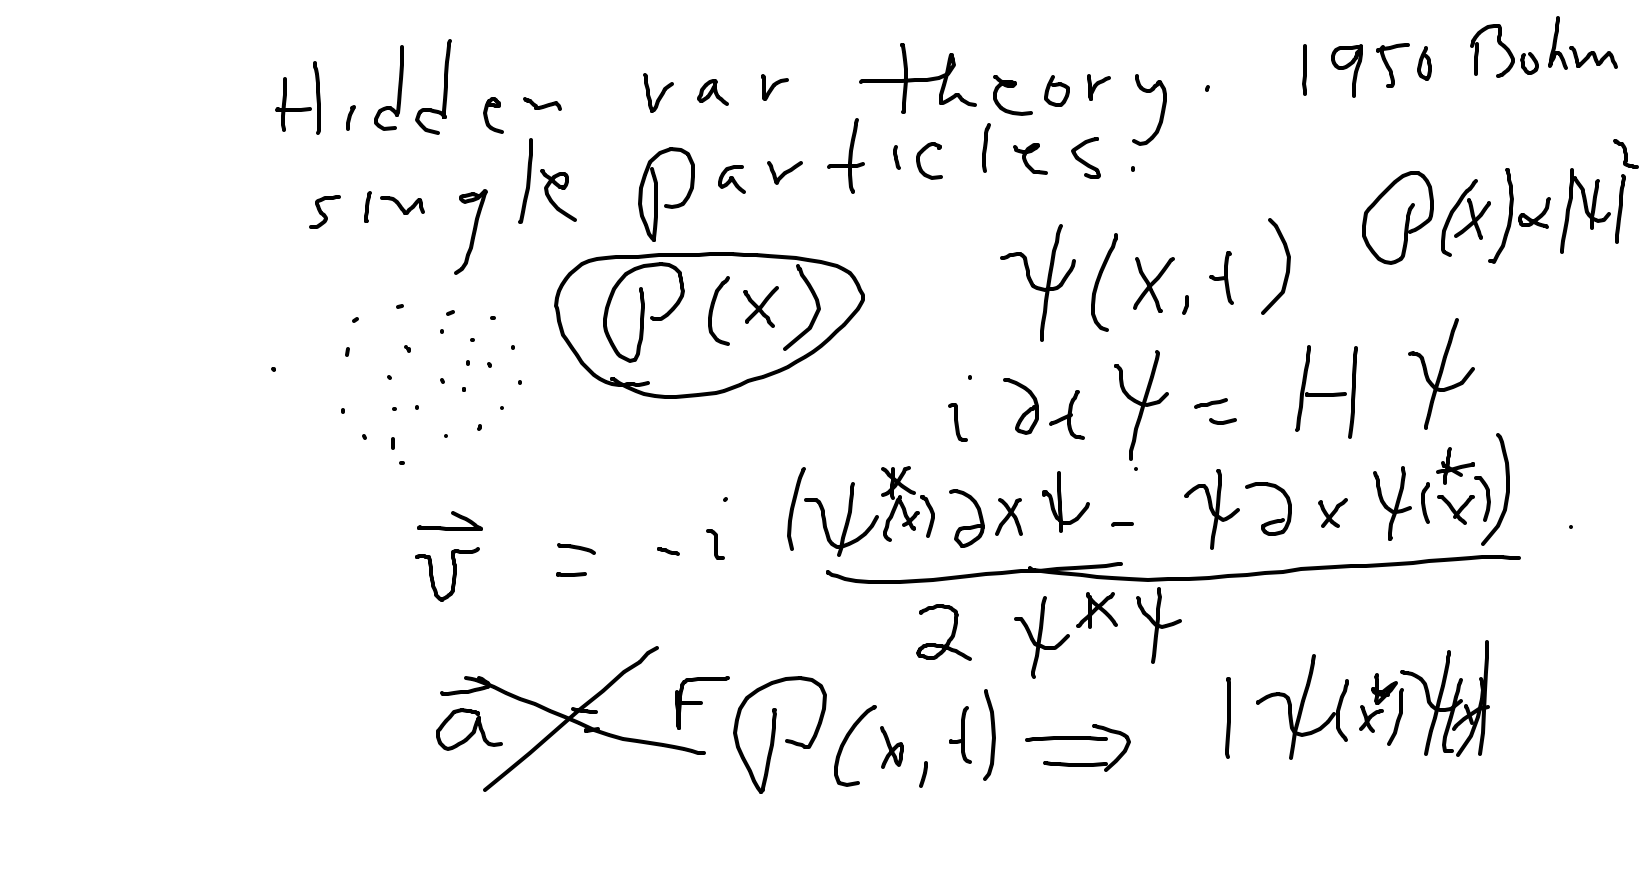 Hidden var theory. 1950 Bohm
single particles.
P(x) ∝ |ψ|²
P(x) ψ(x,t)
i ∂t ψ = H ψ
v⃗ = -i (ψ*(x) ∂x ψ - ψ ∂x ψ*(x)) / 2 ψ*ψ .
a⃗ = F P(x,t) ⇒ |ψ*(x) ψ(x)|